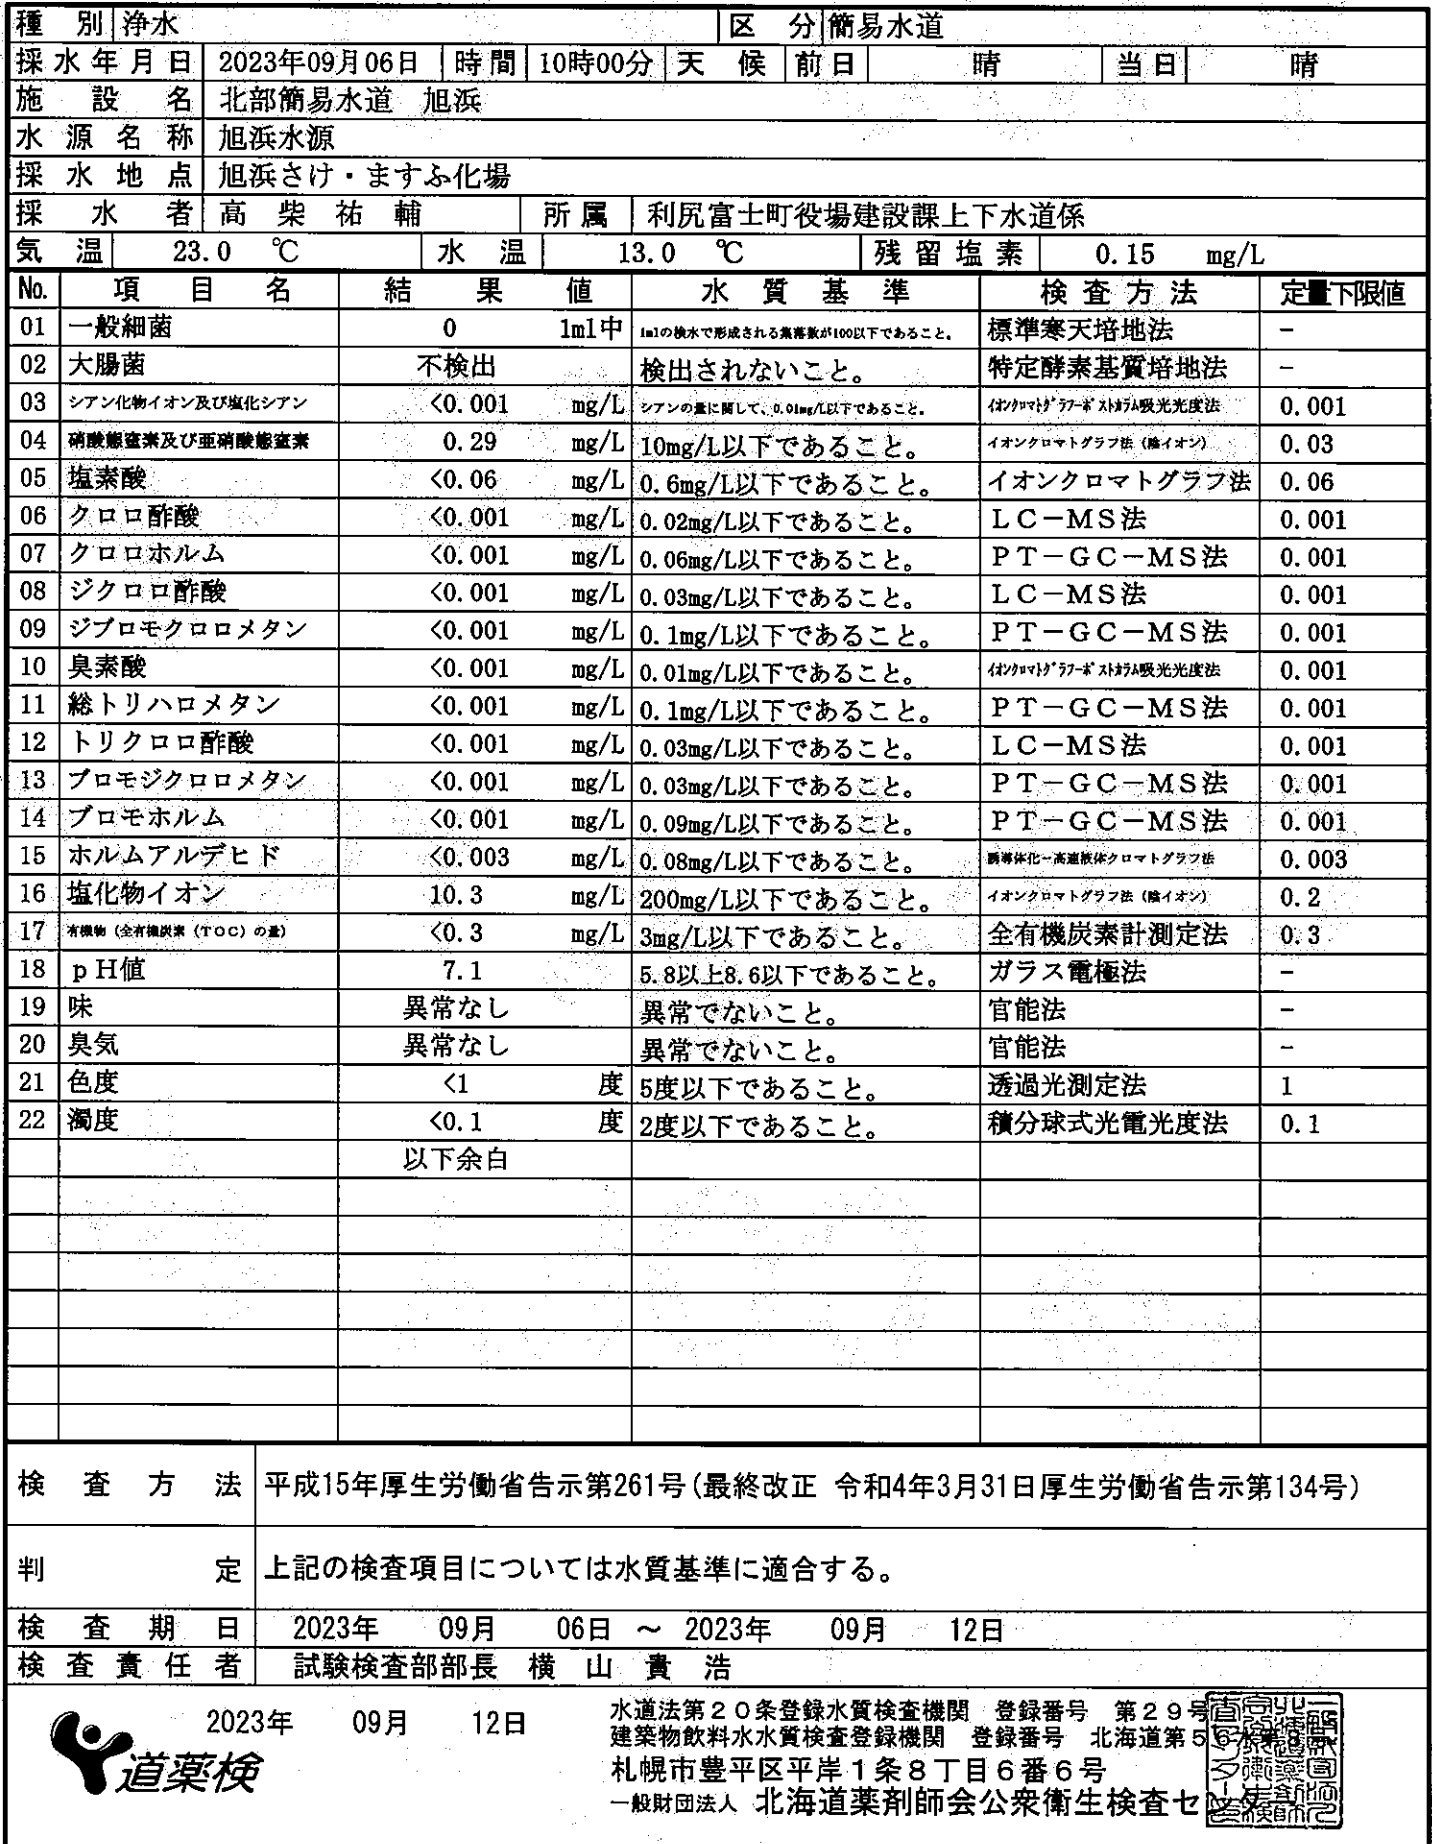 種別 浄水 区分 簡易水道
採水年月日 2023年09月06日 時間 10時00分 天候 前日 晴 当日 晴
施設名 北部簡易水道 旭浜
水源名称 旭浜水源
採水地点 旭浜さけ・ますふ化場
採水者 高柴祐輔 所属 利尻富士町役場建設課上下水道係
気温 23.0 ℃ 水温 13.0 ℃ 残留塩素 0.15 mg/L
No. 項目名 結果値 水質基準 検査方法 定量下限値
01 一般細菌 0 1ml中 1mlの検水で形成される集落数が100以下であること。 標準寒天培地法 －
02 大腸菌 不検出 検出されないこと。 特定酵素基質培地法 －
03 シアン化物イオン及び塩化シアン <0.001 mg/L シアンの量に関して、0.01mg/L以下であること。 イオンクロマトグラフーポストカラム吸光光度法 0.001
04 硝酸態窒素及び亜硝酸態窒素 0.29 mg/L 10mg/L以下であること。 イオンクロマトグラフ法（陰イオン） 0.03
05 塩素酸 <0.06 mg/L 0.6mg/L以下であること。 イオンクロマトグラフ法 0.06
06 クロロ酢酸 <0.001 mg/L 0.02mg/L以下であること。 ＬＣ－ＭＳ法 0.001
07 クロロホルム <0.001 mg/L 0.06mg/L以下であること。 ＰＴ－ＧＣ－ＭＳ法 0.001
08 ジクロロ酢酸 <0.001 mg/L 0.03mg/L以下であること。 ＬＣ－ＭＳ法 0.001
09 ジブロモクロロメタン <0.001 mg/L 0.1mg/L以下であること。 ＰＴ－ＧＣ－ＭＳ法 0.001
10 臭素酸 <0.001 mg/L 0.01mg/L以下であること。 イオンクロマトグラフーポストカラム吸光光度法 0.001
11 総トリハロメタン <0.001 mg/L 0.1mg/L以下であること。 ＰＴ－ＧＣ－ＭＳ法 0.001
12 トリクロロ酢酸 <0.001 mg/L 0.03mg/L以下であること。 ＬＣ－ＭＳ法 0.001
13 ブロモジクロロメタン <0.001 mg/L 0.03mg/L以下であること。 ＰＴ－ＧＣ－ＭＳ法 0.001
14 ブロモホルム <0.001 mg/L 0.09mg/L以下であること。 ＰＴ－ＧＣ－ＭＳ法 0.001
15 ホルムアルデヒド <0.003 mg/L 0.08mg/L以下であること。 誘導体化－高速液体クロマトグラフ法 0.003
16 塩化物イオン 10.3 mg/L 200mg/L以下であること。 イオンクロマトグラフ法（陰イオン） 0.2
17 有機物（全有機炭素（ＴＯＣ）の量） <0.3 mg/L 3mg/L以下であること。 全有機炭素計測定法 0.3
18 ｐＨ値 7.1 5.8以上8.6以下であること。 ガラス電極法 －
19 味 異常なし 異常でないこと。 官能法 －
20 臭気 異常なし 異常でないこと。 官能法 －
21 色度 <1 度 5度以下であること。 透過光測定法 1
22 濁度 <0.1 度 2度以下であること。 積分球式光電光度法 0.1
以下余白
検査方法 平成15年厚生労働省告示第261号(最終改正 令和4年3月31日厚生労働省告示第134号)
判定 上記の検査項目については水質基準に適合する。
検査期日 2023年 09月 06日 ～ 2023年 09月 12日
検査責任者 試験検査部部長 横山貴浩
2023年 09月 12日
道薬検
水道法第２０条登録水質検査機関 登録番号 第２９号
建築物飲料水水質検査登録機関 登録番号 北海道第５６水第８号
札幌市豊平区平岸１条８丁目６番６号
一般財団法人 北海道薬剤師会公衆衛生検査センター